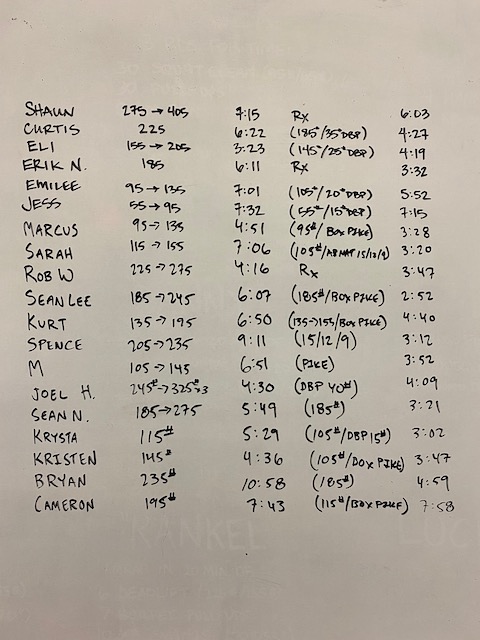 SHAUN 275 → 405 7:15 Rx 6:03
CURTIS 225 6:22 (185#/35# DBP) 4:27
ELI 155 → 205 3:23 (145#/25# DBP) 4:19
ERIK N. 185 6:11 Rx 3:32
EMILEE 95 → 135 7:01 (105#/20# DBP) 5:52
JESS 55 → 95 7:32 (55#/15# DBP) 7:15
MARCUS 95 → 135 4:51 (95#/BOX PIKE) 3:28
SARAH 115 → 155 7:06 (105#/ABMAT 15/12/9) 3:20
ROB W 225 → 275 4:16 Rx 3:47
SEAN LEE 185 → 245 6:07 (185#/BOX PIKE) 2:52
KURT 135 → 195 6:50 (135→155/BOX PIKE) 4:40
SPENCE 205 → 235 9:11 (15/12/9) 3:12
M 105 → 145 6:51 (PIKE) 3:52
JOEL H. 245# → 325#x3 4:30 (DBP 40#) 4:09
SEAN N. 185 → 275 5:49 (185#) 3:21
KRYSTA 115# 5:29 (105#/DBP 15#) 3:02
KRISTEN 145# 4:36 (105#/BOX PIKE) 3:47
BRYAN 235# 10:58 (185#) 4:59
CAMERON 195# 7:43 (115#/BOX PIKE) 7:58
RANKEL